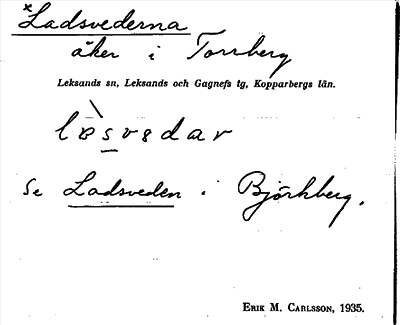 *Ladsvederna
åker i Torrberg
Leksands sn, Leksands och Gagnefs tg, Kopparbergs län.
se Ladsveden i Björkberg.
ERIK M. CARLSSON, 1935.